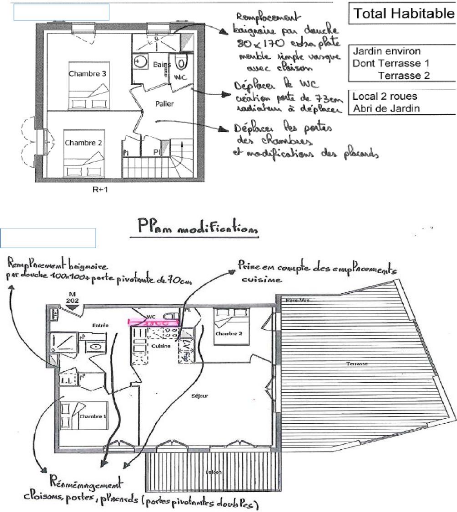 Total Habitable
Jardin environ
Dont Terrasse 1
Terrasse 2
Local 2 roues
Abri de Jardin
Remplacement
baignoire par douche
80 x 170 extra plate
meuble simple vasque
avec cloison
Déplacer le WC
création porte de 73cm
radiateur à déplacer
Déplacer les portes
des chambres
et modifications des placards
Chambre 3
Bains
WC
Palier
Chambre 2
Pl
Pl
R+1
Plan modifications
Remplacement baignoire
par douche 100x100 + porte pivotante de 70cm
Prise en compte des emplacements
cuisine
M
202
Entrée
WC
Cuisine
Chambre 2
Terrasse
Séjour
Chambre 1
Balcon
Réaménagement
cloisons, portes, placards (portes pivotantes doubles)